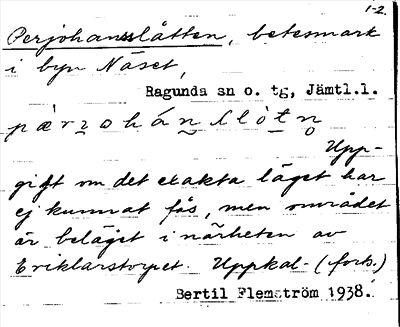 1-2.
Perjohansslåtten, betesmark
i byn Näset,
Ragunda sn o. tg, Jämtl.l.
Upp-
gift om det exakta läget har
ej kunnat fås, men området
är beläget i närheten av
Eriklarstorpet. Uppkal- (forts.)
Bertil Flemström 1938.